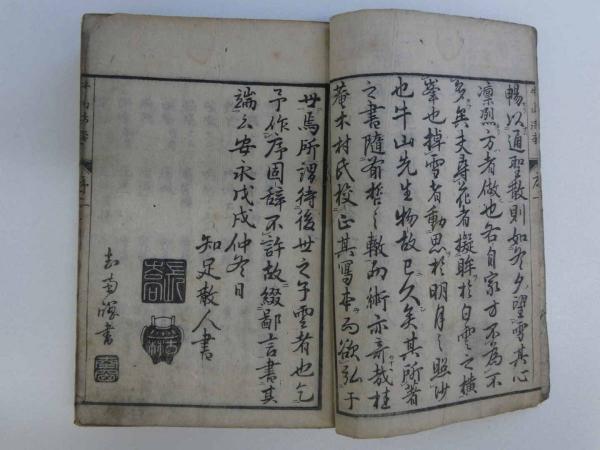 暢以通聖散則如冬夕望雪其心
凛烈方者做也各自家方不為不
多矣夫尋花者擬眸於白雲之横
峯也掉雪者動思於明月之照沙
也牛山先生物故已久矣其所著
之書隨前哲之轍而術亦奇哉桂
菴木村氏校正其寫本而欲弘于
世焉所謂待後世之子雲者也乞
予作序固辞不許故綴鄙言書其
端云安永戊戌仲冬日
知足散人書